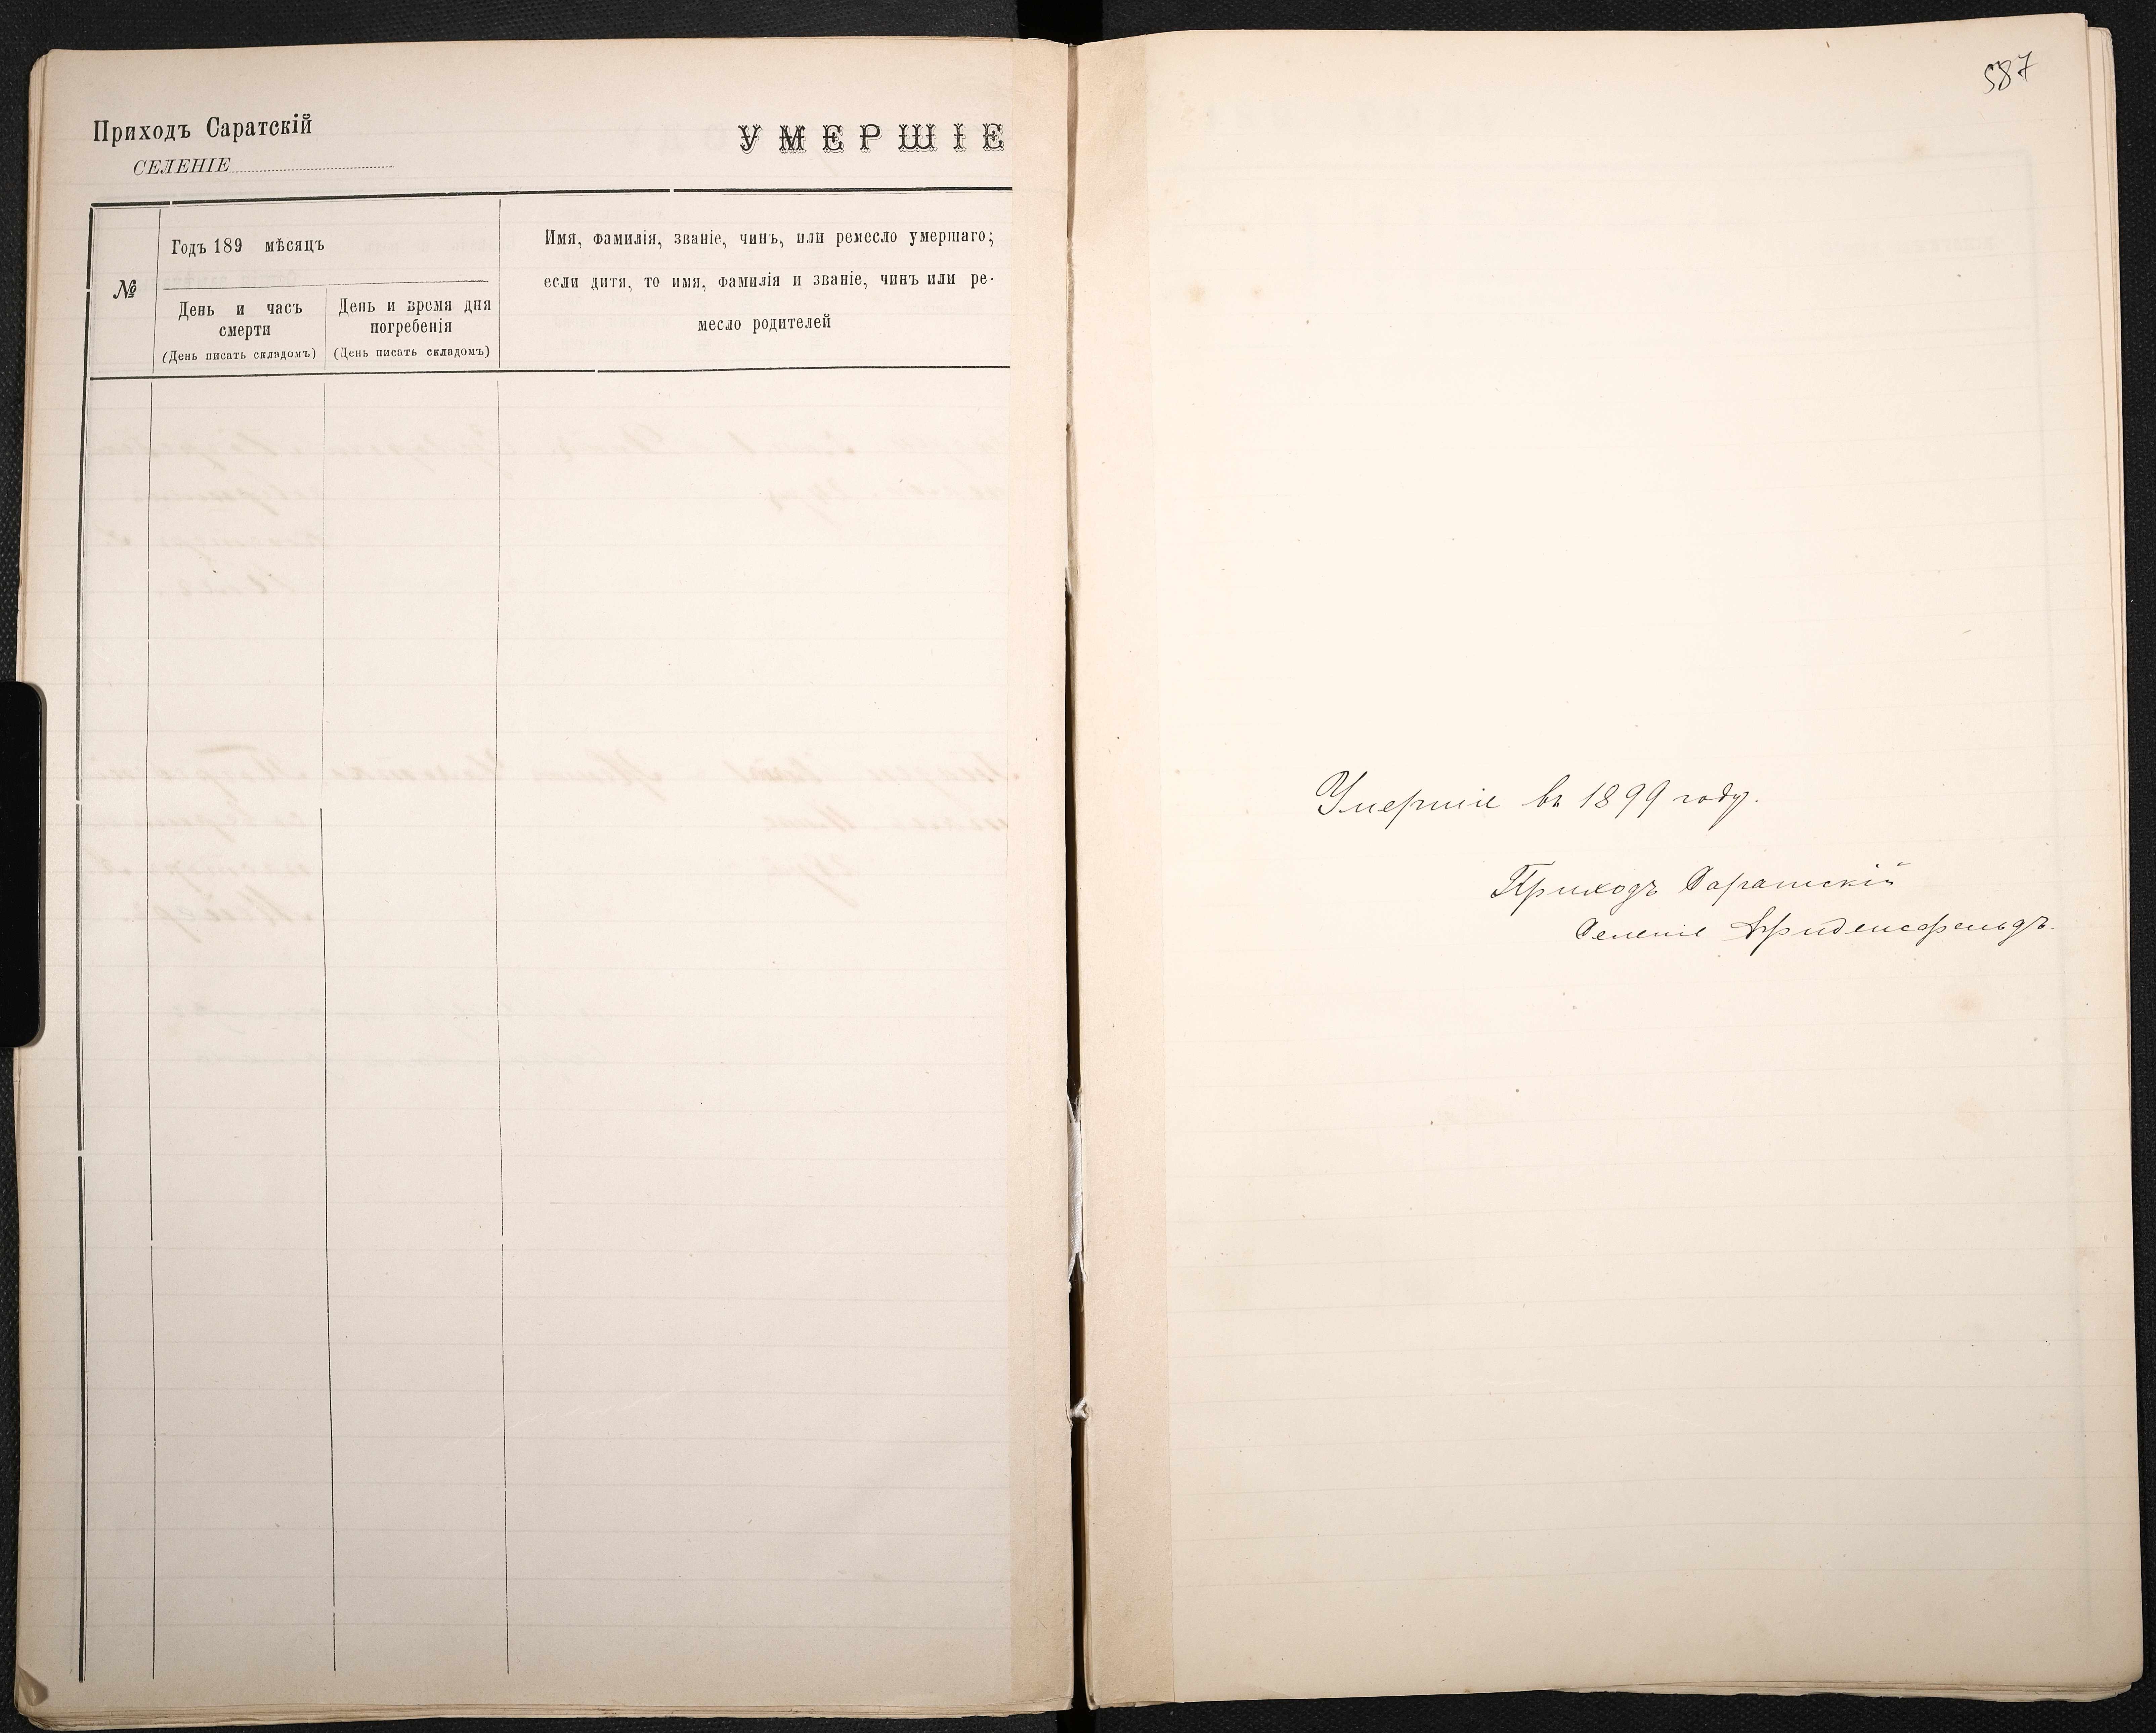 Приходъ Саратскій
СЕЛЕНІЕ
УМЕРШІЕ
№
Годъ 189 мѣсяцъ
День и часъ
смерти
(День писать складомъ)
День и время дня
погребенія
(День писать складомъ)
Имя, фамилія, званіе, чинъ, или ремесло умершаго;
если дитя, то имя, фамилія и званіе, чинъ или ре-
месло родителей
587
Умершіе въ 1899 году.
Приходъ Саратскій
Селеніе Фриденсфельдъ.